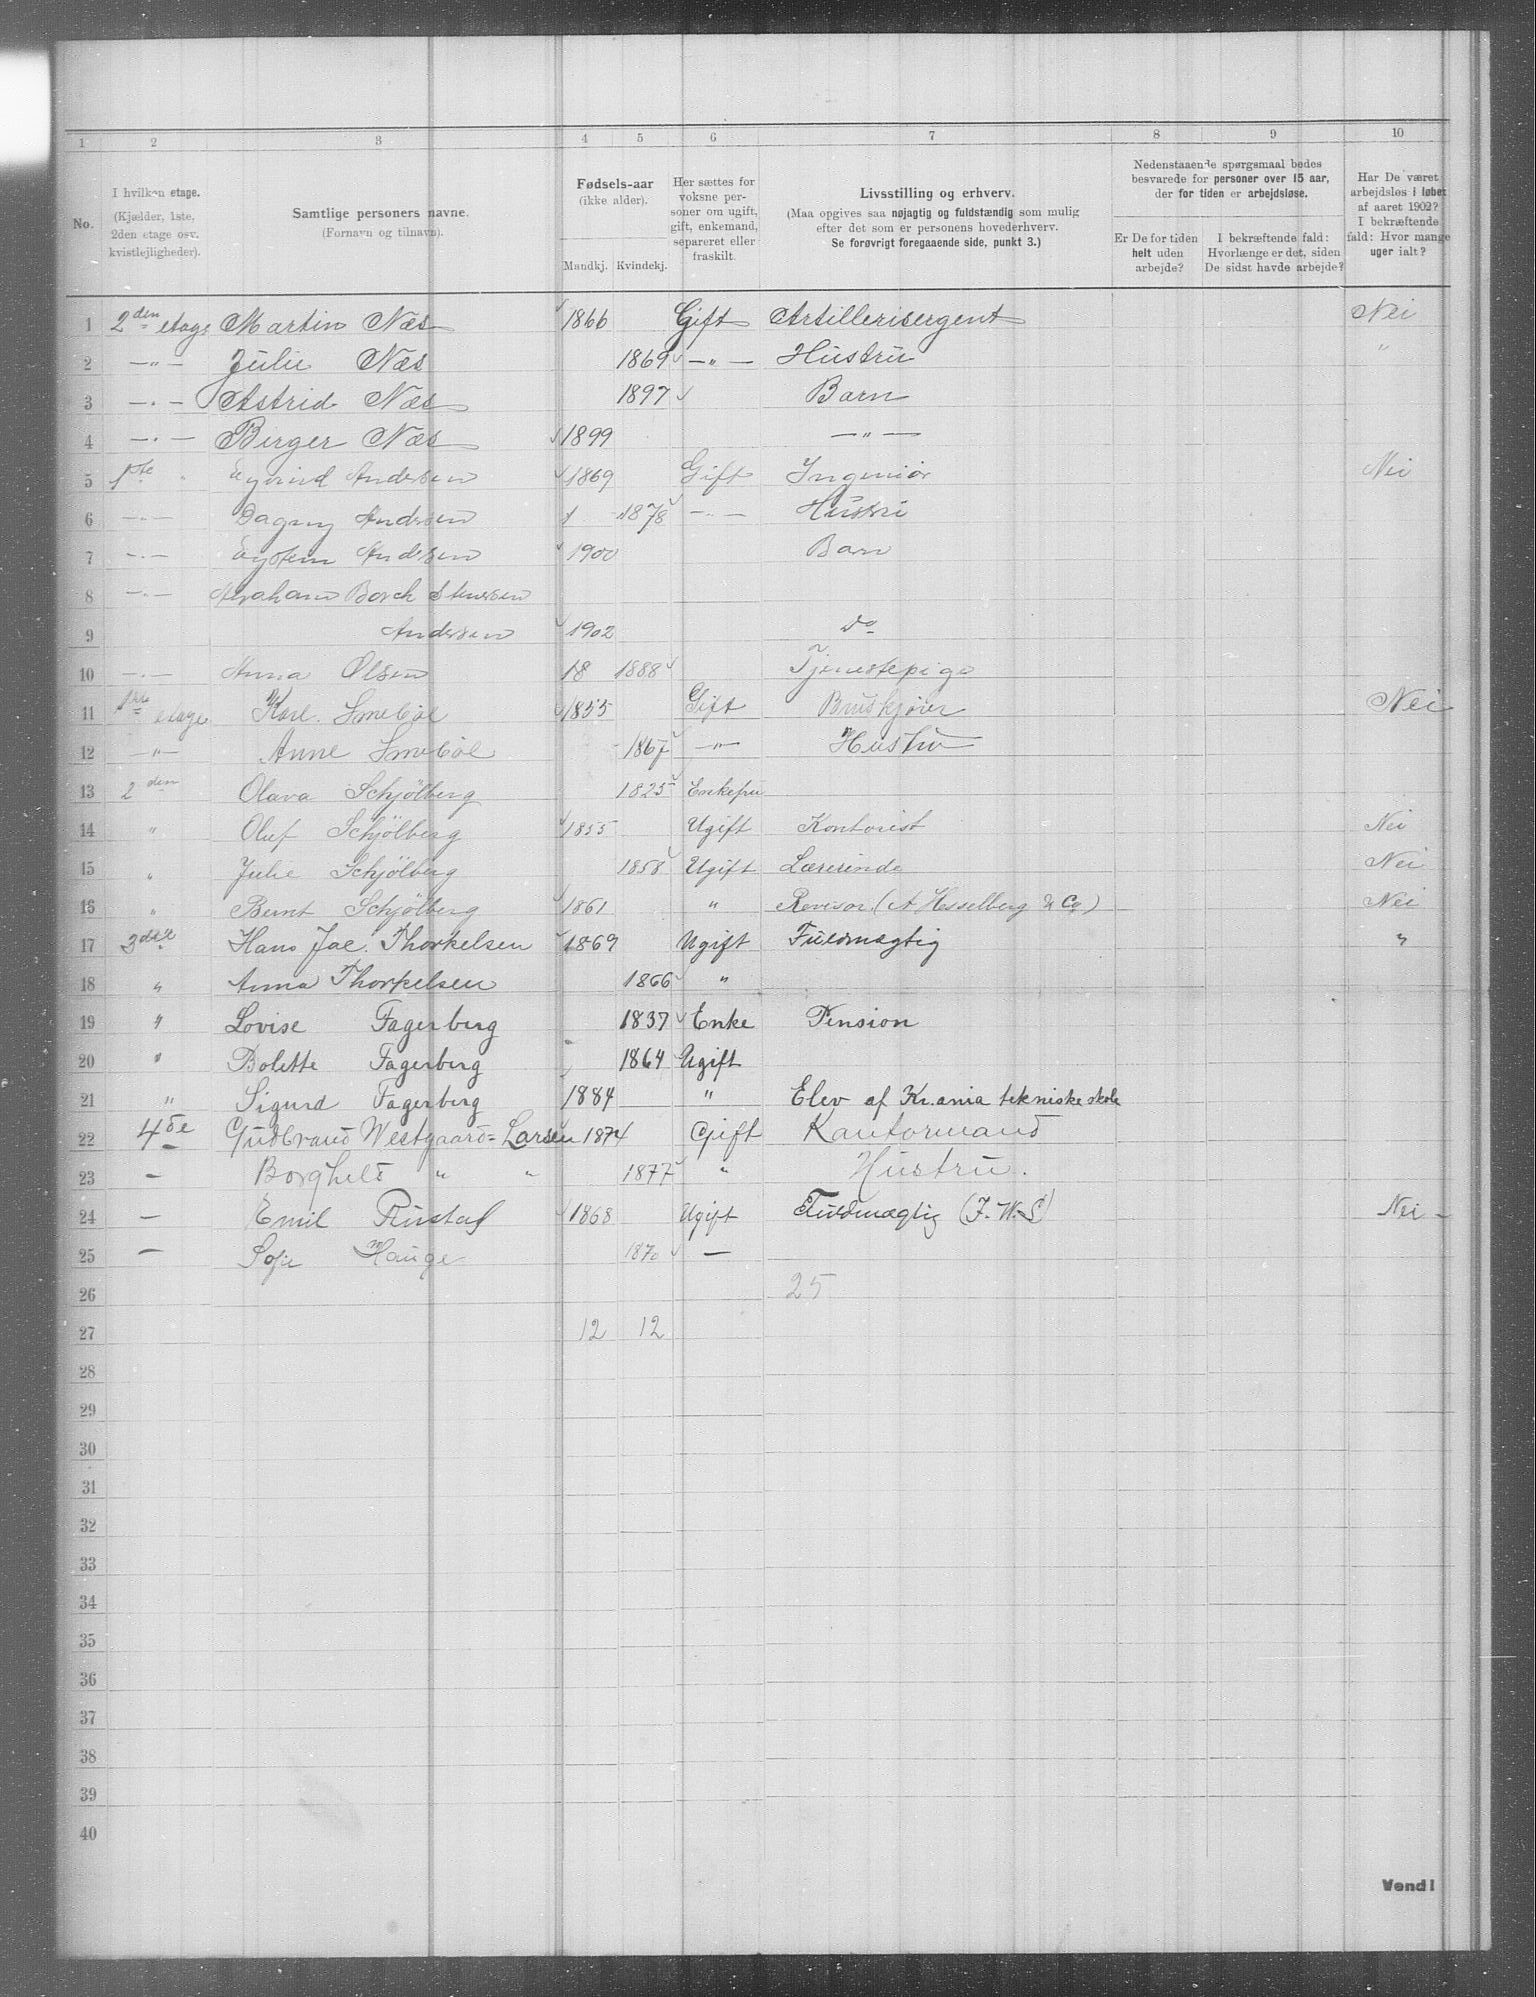 1 2 3 4 5 6 7 8 9 10
No.
I hvilken etage.
(Kjælder, 1ste,
2den etage osv.
kvistlejligheder).
Samtlige personers navne.
(Fornavn og tilnavn).
Fødsels-aar
(ikke alder).
Mandkj. Kvindekj.
Her sættes for
voksne per-
soner om ugift,
gift, enkemand,
separeret eller
fraskilt.
Livsstilling og erhverv.
(Maa opgives saa nøjagtig og fuldstændig som mulig
efter det som er personens hovederhverv.
Se forøvrigt foregaaende side, punkt 3.)
Nedenstaaende spørgsmaal bedes
besvarede for personer over 15 aar,
der for tiden er arbejdsløse.
Er De for tiden
helt uden
arbejde?
I bekræftende fald:
Hvorlænge er det, siden
De sidst havde arbejde?
Har De været
arbejdsløs i løbet
af aaret 1902?
I bekræftende
fald: Hvor mange
uger ialt?
1 2den etage Martin Næs 1866 Gift Artillerisergent Nei
2 —"— Julie Næs 1869 —"— Hustru "
3 —"— Astrid Næs 1897 Barn
4 —"— Birger Næs 1899 —"—
5 1ste " Eyvind Andersen 1869 Gift Ingeniør Nei
6 —"— Dagny Andersen 1878 —"— Hustru
7 —"— Eystein Andersen 1900 Barn
8 —"— Abraham Borch
9 Andersen 1902 Do
10 —"— Anna Olsen 18 1888 Tjenestepige
11 1ste etage Karl Smebøl 1855 Gift Nei
12 —"— Anne Smebøl 1867 —"— Hustru
13 2den Olava Schjölberg 1825 Enkefru
14 " Oluf Schjölberg 1855 Ugift Kontorist Nei
15 " Julie Schjölberg 1858 Ugift Lærerinde Nei
16 " Bernt Schjölberg 1861 " Revisor (A Hesselberg & Co) Nei
17 3die Hans Jac. Thorkelsen 1869 Ugift Fuldmægtig "
18 " Anna Thorkelsen 1866 "
19 " Lovise Fagerberg 1837 Enke Pension
20 " Bolette Fagerberg 1864 Ugift
21 " Sigurd Fagerberg 1884 " Elev af Kr.ania tekniske skole
22 4de Gudbrand Westgaard-Larsen 1874 Gift Kontormand
23 — Borghild " " 1877 " Hustru.
24 — Emil Rustad 1868 Ugift Fuldmægtig Nei —
25 — Sofie Hauge 1870 —
26 25
27 12 12
28
29
30
31
32
33
34
35
36
37
38
39
40
Vend!